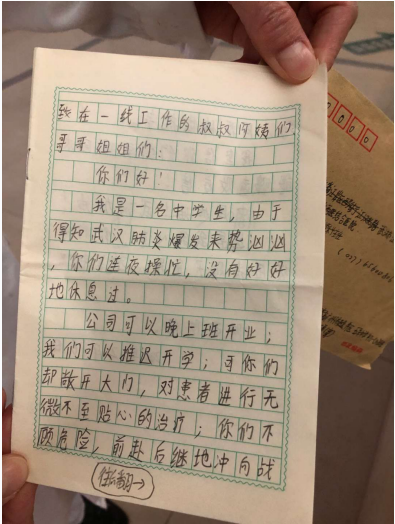 致在一线工作的叔叔阿姨们
哥哥姐姐们:
你们好!
我是一名中学生,由于
得知武汉肺炎爆发来势汹汹
,你们连夜操忙,没有好好
地休息过。
公司可以晚上班开业;
我们可以推迟开学;可你们
却敞开大门,对患者进行无
微不至贴心的治疗;你们不
顾危险,前赴后继地冲向战
往翻→